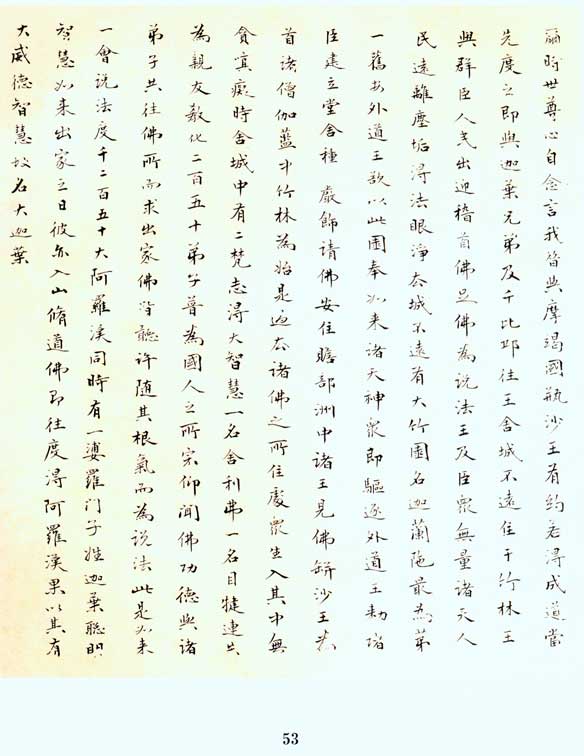 爾時世尊心自念言我昔與摩竭國瓶沙王有約若得成道當
先度之即與迦葉兄弟及千比邱往王舍城不遠住于竹林王
與群臣人民出迎稽首佛足佛為說法王及臣眾無量諸天人
民遠離塵垢淂法眼淨去城不遠有大竹園名迦蘭陁最為第
一舊與外道王欲以此園奉如来諸天神眾即驅逐外道王勑諸
臣建立堂舍種嚴飾請佛安住瞻部洲中諸王見佛缾沙王為
首諸僧伽藍中竹林為始是過去諸佛之所住處眾生入其中無
貪嗔癡時舍城中有二梵志淂大智慧一名舍利弗一名目犍連共
為親友教化二百五十弟子普為國人之所宗仰聞佛功德與諸
弟子共往佛所而求出家佛皆聽許随其根氣而為說法此是如来
一會說法度千二百五十大阿羅漢同時有一婆羅门子姓迦葉聰明
智慧如来出家之日彼亦入山脩道佛即往度淂阿羅漢果以其有
大威德智慧故名大迦葉
53